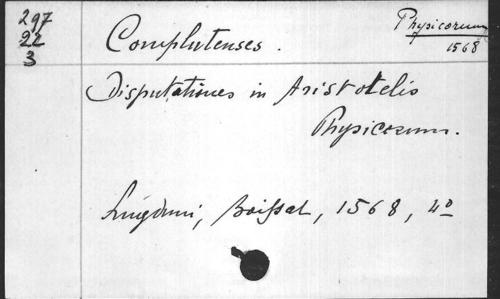 297
22
3
Complutenses.
Physicorum
1568
Disputationes in Aristotelis
Physicorum.
Lugduni, Boissat, 1568, 4o